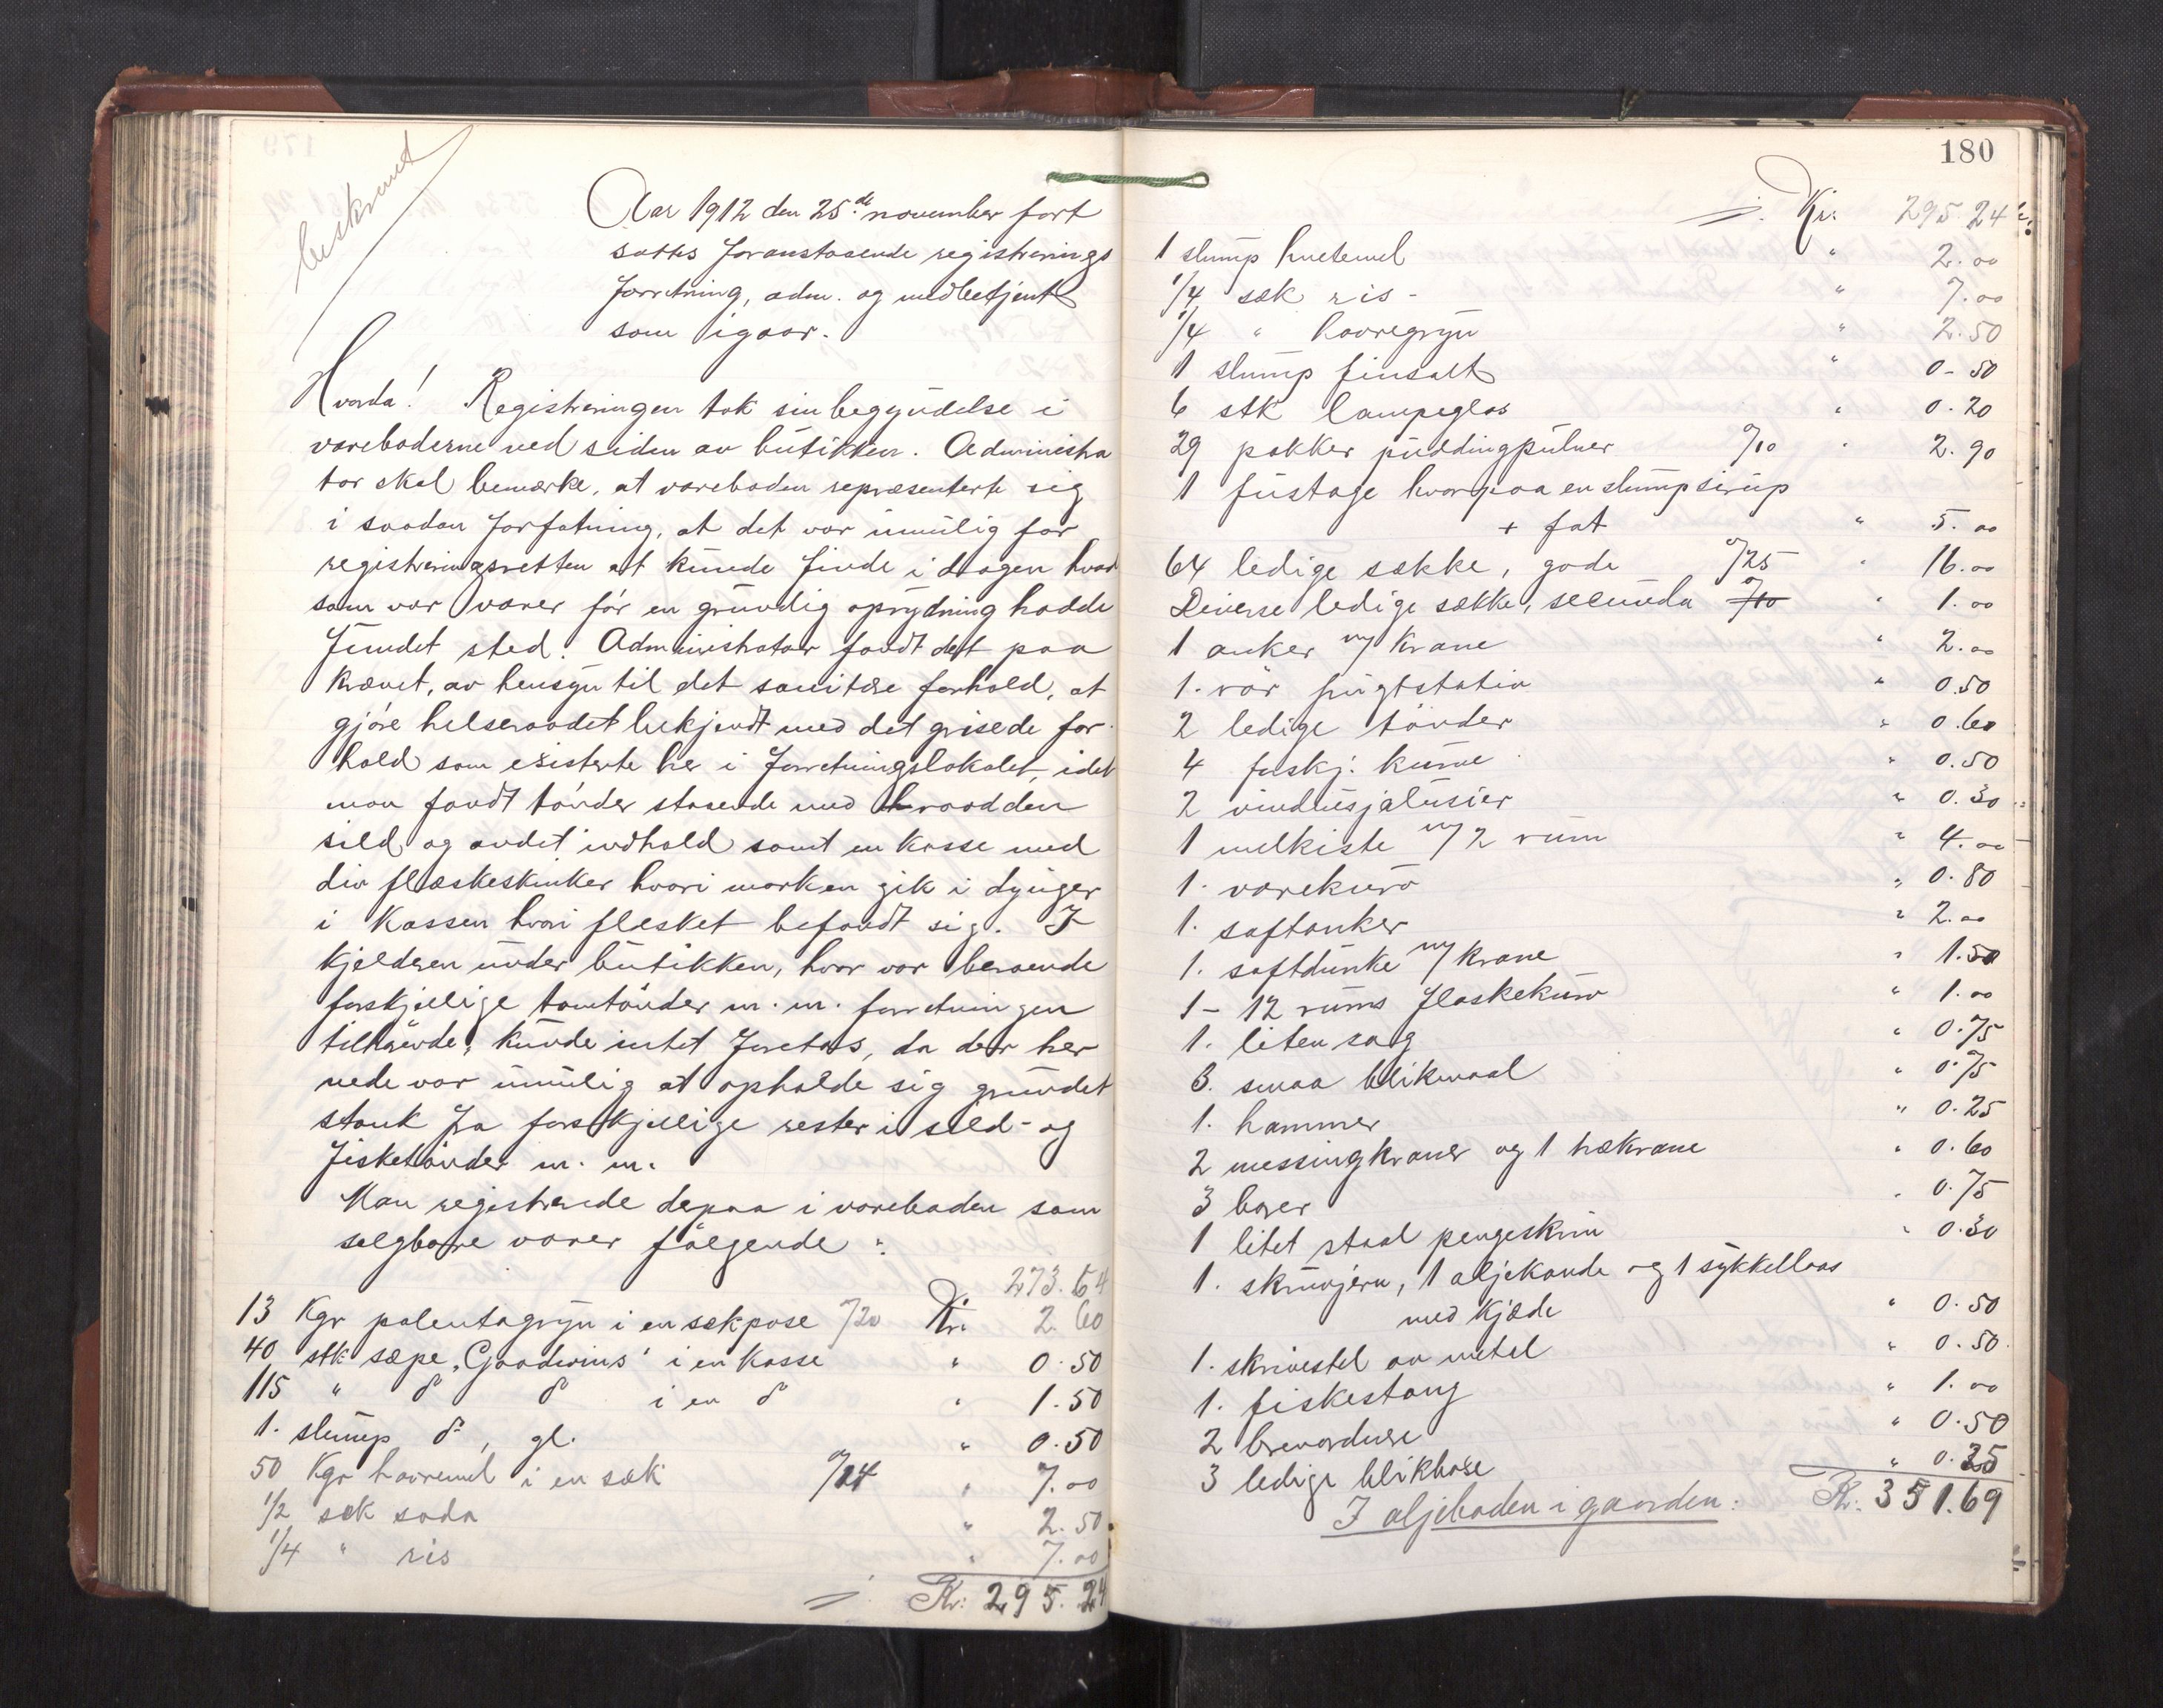 beskrevet
Aar 1912 den 25de november fort
sattes foranstaaende registrerings
forretning, adm. og medbetjent
som igaar.
Hvorda! Registreringen tok sin begyndelse i
vareboderne ved siden av butikken. Administra
tor skal bemærke, at vareboden repræsenterte sig
i saadan forfatning, at det var umulig for
registreringsretten at kunde finde i dagen hvad
som var varer før en grundig oprydning hadde
fundet sted. Administrator fandt det paa
krævet, av hensyn til det sanitære forhold, at
gjøre helseraadet bekjendt med det grisede for
hold som existerte her i forretningslokalet, idet
man fandt tønder staaende med raadden
sild og andet indhold samt en kasse med
div flæskeskinker hvori marken gik i dynger
i kassen hvori flesket befandt sig. I
kjelderen under butikken, hvor var beroende
forskjellige tomtønder m. m. forretningen
tilhørende, kunde intet foretas, da der her
nede var umulig at opholde sig grundet
stank fra forskjellige rester i sild- og
fisketønder m. m.
Man registrerede depaa i vareboden som
salgbare varer følgende:
273.64
13 Kgr polentagryn i en sækpose %20 Kr. 2.60
40 stk sæpe "Goodwins" i en kasse " 0.50
115 " do do i en do " 1.50
1. slump do, gl. " 0.50
50 Kgr havremel i en sæk %14 " 7.00
1/2 sæk soda " 2.50
1/4 " ris " 7.00
Kr: 295.24
180
Kr. 295.24
1 slump hvetemel " 2.00
1/4 sæk ris - " 7.00
1/4 " havregryn " 2.50
1 slump finsalt " 0-50
6 stk lampeglas " 0.20
29 pakker puddingpulver %10 " 2.90
1 fustage hvorpaa en slump sirup
+ fat " 5.00
64 ledige sække, gode %25 " 16.00
Diverse ledige sække, secunda %10 " 1.00
1 anker m/ krane " 2.00
1. rør frugtstativ " 0.50
2 ledige tønder " 0.60
4 forskj. kurve " 0.50
2 vindusjalusier " 0.30
1 melkiste m/ 2 rum " 4.00
1. varekurv " 0.80
1. saftanker " 2.00
1. saftdunke m/ krane " 1.50
1- 12 rums flaskekurv " 1.00
1. liten sag " 0.75
3. smaa blikmaal " 0.75
1. hammer " 0.25
2 messingkraner og 1 trækrane " 0.60
3 borer " 0.75
1 litet staal pengeskrin " 0.30
1. skruvjern, 1 oljekande og 1 sykkellaas
med kjæde " 0.50
1. skrivestel av metal " 0.50
1. fiskestang " 1.00
2 brevordnere " 0.50
3 ledige blikbokse " 0.35
Kr. 351.69
I oljeboden i gaarden: